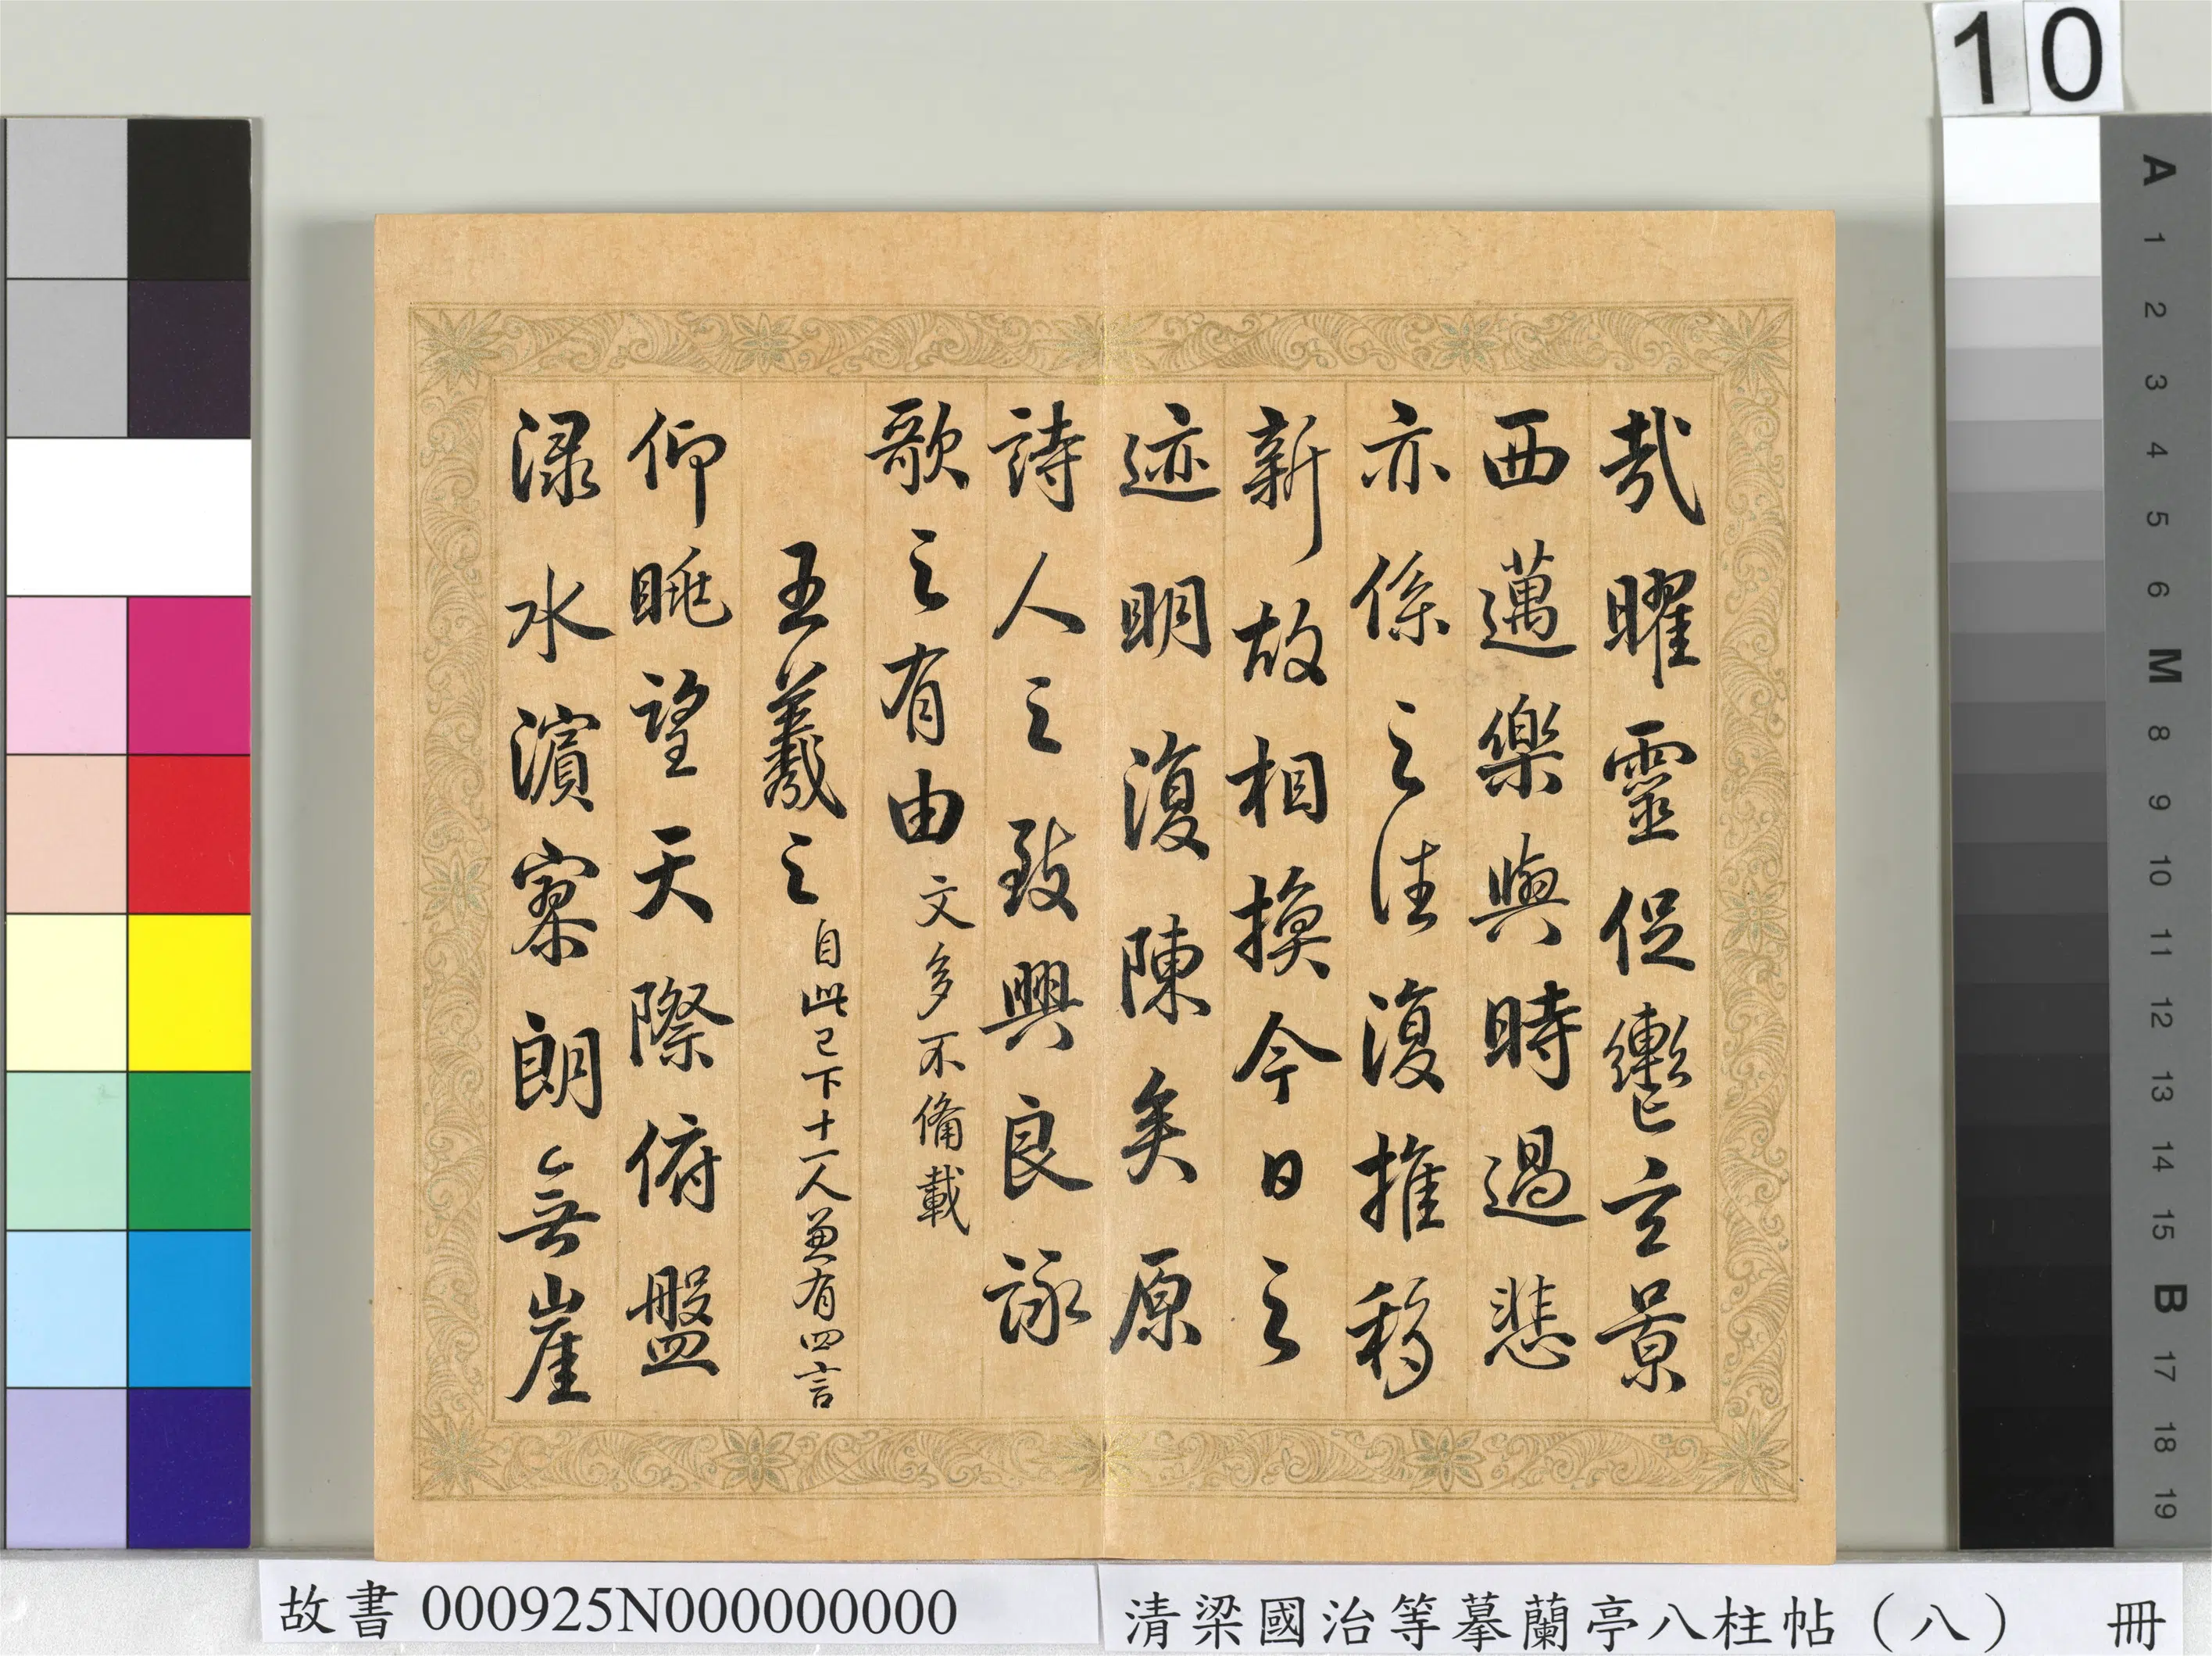 10
哉曜靈促轡玄景
西邁樂與時過悲
亦係之往復推移
新故相換今日之
迹明復陳矣原
詩人之致興良詠
歌之有由文多不備載
王羲之自此已下十一人兼有四言
仰眺望天際俯盤
淥水濱寥朗無崖
A
1
2
3
4
5
6
M
8
9
10
11
12
13
14
15
B
17
18
19
故書 000925N000000000
清梁國治等摹蘭亭八柱帖（八） 冊